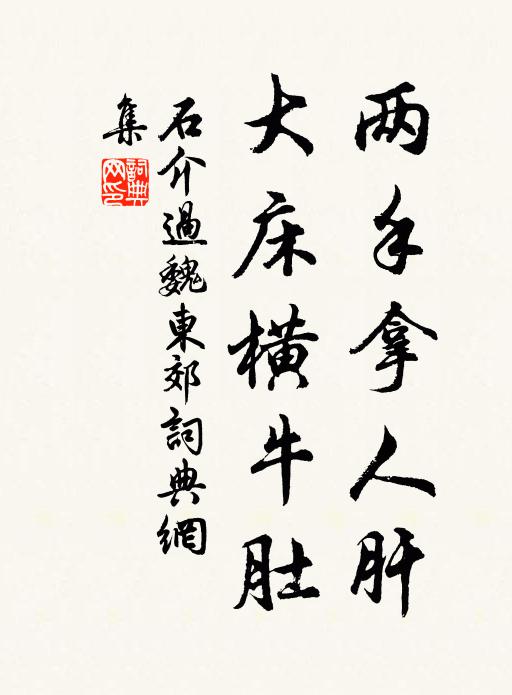 两手拿人肝
大床横牛肚
石介過魏東郊詞典網
集
詞典
网印